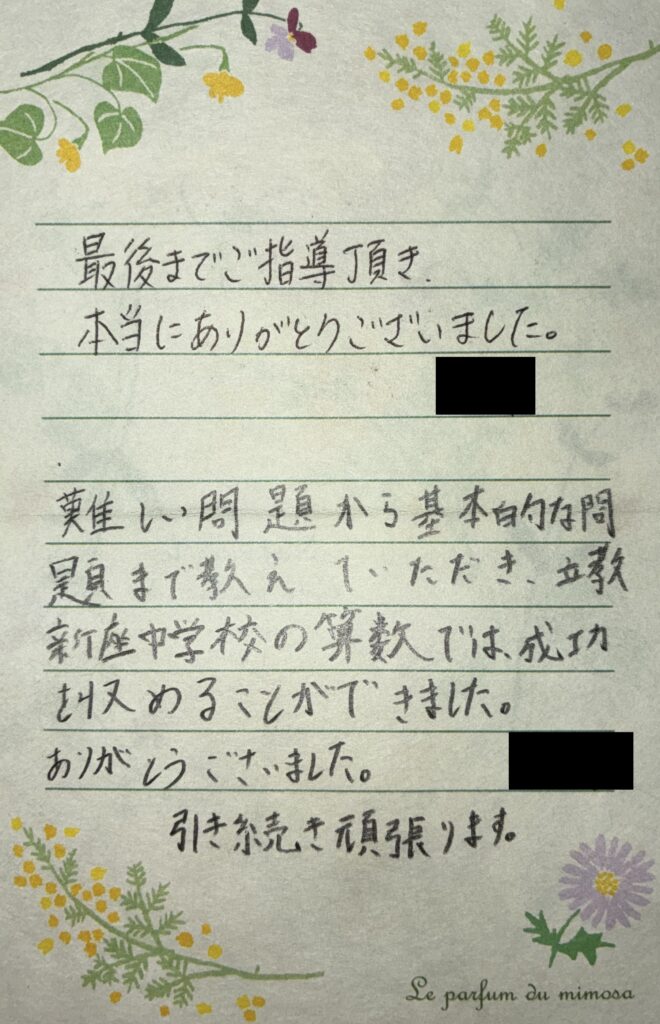 最後までご指導頂き、
本当にありがとうございました。
難しい問題から基本的な問
題まで教えていただき、立教
新座中学校の算数では、成功
を収めることができました。
ありがとうございました。
引き続き頑張ります。
Le parfum du mimosa